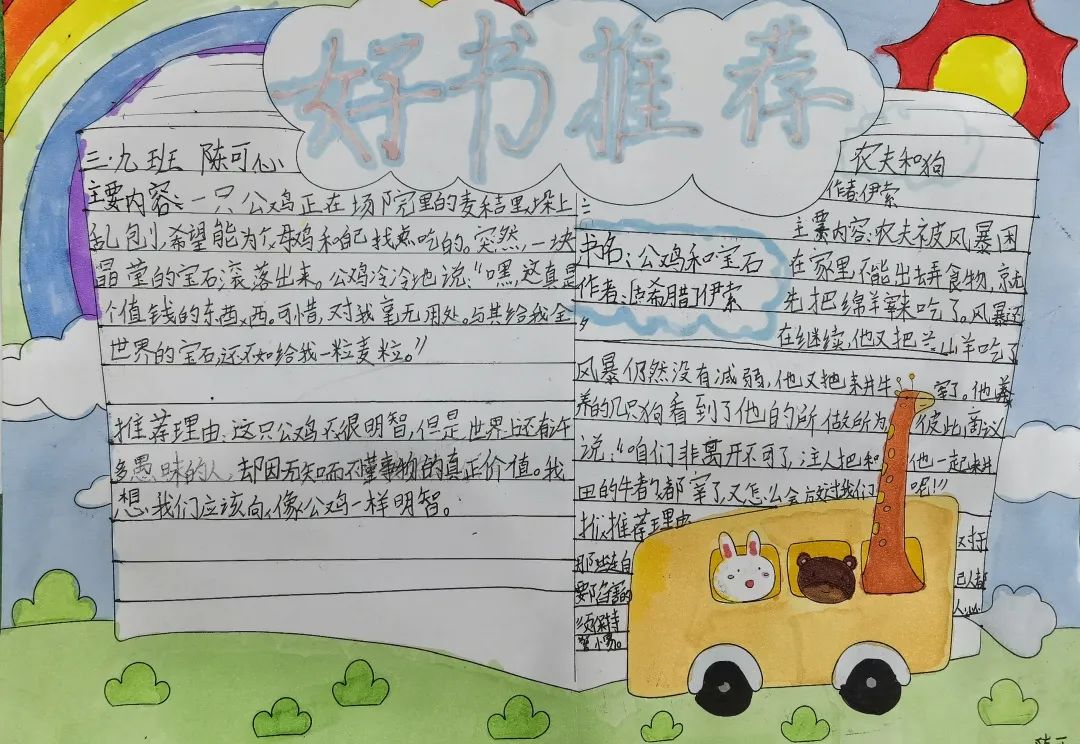 好书推荐
三.九班 陈可心
主要内容:一只公鸡正在场院里的麦秸垛上
乱刨,希望能为母鸡和自己找点吃的。突然,一块
晶莹的宝石滚落出来。公鸡冷冷地说:“嘿,这真是
个值钱的东西。可惜,对我毫无用处。与其给我全
世界的宝石,还不如给我一粒麦粒。”
推荐理由:这只公鸡不很明智,但是世界上还有许
多愚昧的人,却因无知而不懂事物的真正价值。我
想,我们应该向像公鸡一样明智。
书名:公鸡和宝石
作者:古希腊伊索
农夫和狗
作者:伊索
主要内容:农夫被风暴困
在家里不能出去弄食物,就
先把绵羊宰吃了。风暴还
在继续,他又把山羊吃了
风暴仍然没有减弱,他又把耕牛宰了。他養
养的几只狗看到了他的所做所为,彼此商议
说:“咱们非离开不可了,主人把和他一起耕
田的牛都宰了,又怎么会放过我们呢!”
推荐理由
对于
那些连自己人都
要陷害的人,必
须保持
警惕。